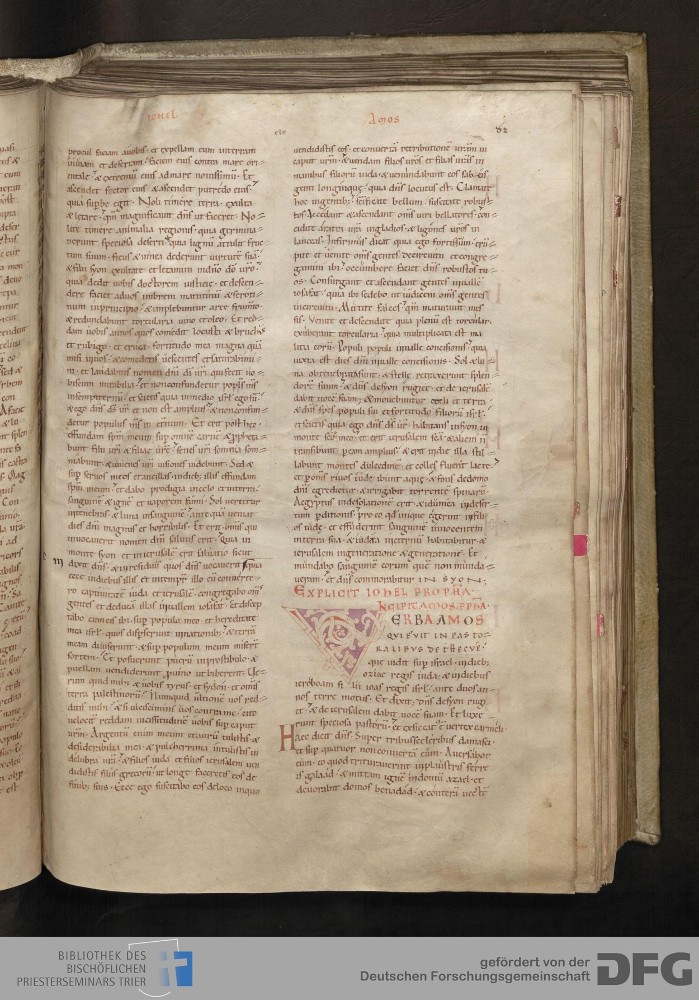 iohel
Amos
82
procul faciam auobis · et expellam eum interram
inuiam et desertam · faciem eius contra mare ori-
entale · & extremū eius admare nouissimū · Et
ascendet foetor eius · & ascendet putredo eius ·
quia supbe egit · Noli timere terra · exulta
& letare · qm̄ magnificauit dn̄s ut faceret · No-
lite timere animalia regionis · quia germina-
uerunt speciosa deserti · quia lignū attulit fruc-
tum suum · ficus & uinea dederunt uirtutē suā ·
& filii syon exultate et letamini indn̄o dō uro ·
quia dedit uobis doctorem iusticie · et descen-
dere faciet aduos imbrem matutinū & seroti-
num inprincipio · & implebuntur aree frumto ·
& redundabunt torcularia uino et oleo · Et red-
dam uobis annos quos comedit locusta & bruchus
et rubigo · et eruca · fortitudo mea magna quā
misi inuos · & comedetis uescentes et saturabimi-
ni · et laudabitis nomen dn̄i di uri qui fecit uo-
biscum mirabilia · et nonconfundetur popls ms
insempiternū · et scietis quia inmedio isrl ego sū ·
& ego dn̄s ds ur et non est amplius · & nonconfun-
detur populus ms in eternum · Et erit post hec ·
effundam spm meum sup omnē carnē · & ppheta-
bunt filii uri & filie ure · senes uri somnia som-
niabunt · & iuuenes uri uisiones uidebunt · Sed &
sup seruos meos et ancillas indieb · illis effundam
spm meum · et dabo prodigia incelo et interra ·
sanguinē & ignē et uaporem fumi · Sol uertetur
intenebras & luna insanguinē · ante quā ueniat
dies dn̄i magnus et horribilis · Et erit omis qui
inuocauerit nomen dn̄i saluus erit · quia in
monte syon et inierusalē erit saluatio sicut
dixit dn̄s · & inresiduis quos dn̄s uocauerit · quia
ecce indiebus illis et intempr illo cū conuerte-
ro captiuitatē iuda et ierusalē · congregabo oms
gentes et deducā illas inuallem iosafat · et discep-
tabo cum eis ibi · sup populo meo · et hereditate
mea isrl · quos disperserunt innationib · & terrā
meam diuiserunt · & sup populum meum miserunt
sortem · Et posuerunt puerū inprostibulo · &
puellam uendiderunt puino ut biberent · Ue-
rum quid mihi & uobis tyrus et sydon · et omis
terra palestinorū · Numquid ultionē uos red-
ditis mihi · & si ulciscimini uos contra me · cito
uelociter reddam uicissitudinē uobis sup caput
urm · Argentū enim meum et aurū tulistis · &
desiderabilia mea · & pulcherrima intulistis in
delubra ura · & filios iuda et filios ierusalem uen-
didistis filiis grecorū · ut longe faceretis eos de
finib suis · Ecce ego suscitabo eos deloco inquo
uendidistis eos · et conuertā retributionē uram in
caput urm · & uendam filios uros et filias uras in
manibus filiorū iuda · & uenundabunt eos sabeis
genti longinque · quia dn̄s locutus est · Clamate
hoc ingentib · scificate bellum · suscitate robus-
tos · accedant & ascendant omis uiri bellatores · con-
cidite aratra ura ingladios · & ligones uros in
lanceas · Infirmus dicat quia ego fortis sum · erū-
pite et uenite oms gentes decircuitu · et congre-
gamini ibi · occumbere faciet dn̄s robustos tu-
os · Consurgant et ascendant gentes inuallē
iosafat · quia ibi sedebo ut iudicem oms gentes
incircuitu · Mittite falces qm̄ maturauit mes-
sis · Venite et descendite quia plenū est torcular ·
exuberant torcularia · quia multiplicata est ma-
litia eorū · Populi populi inualle concisionis · quia
iuxta est dies dn̄i inualle concisionis · Sol & lu-
na obtenebrati sunt · & stelle retraxerunt splen-
dorē suum · & dn̄s desyon rugiet · et de ierusalē
dabit uocē suam · & mouebuntur celi et terra ·
& dn̄s spes populi sui et fortitudo filiorū isrl ·
et scietis quia ego dn̄s ds ur · habitans insyon in
monte scō meo · et erit ierusalem scā · & alieni n̄
transibunt p eam amplius · & erit indie illa stil-
labunt montes dulcedinē · et colles fluent lacte ·
et p omis riuos iude ibunt aque · & fons dedomo
dn̄i egredietur · & irrigabit torrentē spinarū ·
Aegyptus indesolatione erit · & idumea indeser-
tum pditionis · pro eo qd inique egerint infili-
os iude · et effuderint sanguinē innocentem
interra sua · & iudea ineternū habitabitur · &
ierusalem ingeneratione & generatione · Et
mundabo sanguinē eorum quē non munda-
ueram · et dn̄s commorabitur IN SYON ·
EXPLICIT IOHEL PROPHA ·
INCIPIT AMOS PPHA ·
VERBA AMOS
QUI FUIT IN PASTO-
RALIBUS DE THECUE ·
que uidit sup israel · indieb ·
oziae regis iuda · & indiebus
ieroboam filii ioas regis isrl · ante duos an-
nos terre motus · Et dixit · dn̄s desyon rugi-
et · & de ierusalem dabit uocē suam · Et luxe-
runt speciosa pastorū · et exsiccatus ē uertex carmeli ·
Haec dicit dn̄s · Super tribus sceleribus damasci ·
et sup quatuor non conuertā eum · Aduersabor
eum · eo quod trituraverint inplaustris ferre-
is galaad · & mittam ignē indomū azael · et
deuorabit domos benadad · & conterā uectē
BIBLIOTHEK DES
BISCHÖFLICHEN
PRIESTERSEMINARS TRIER
gefördert von der
Deutschen Forschungsgemeinschaft
DFG